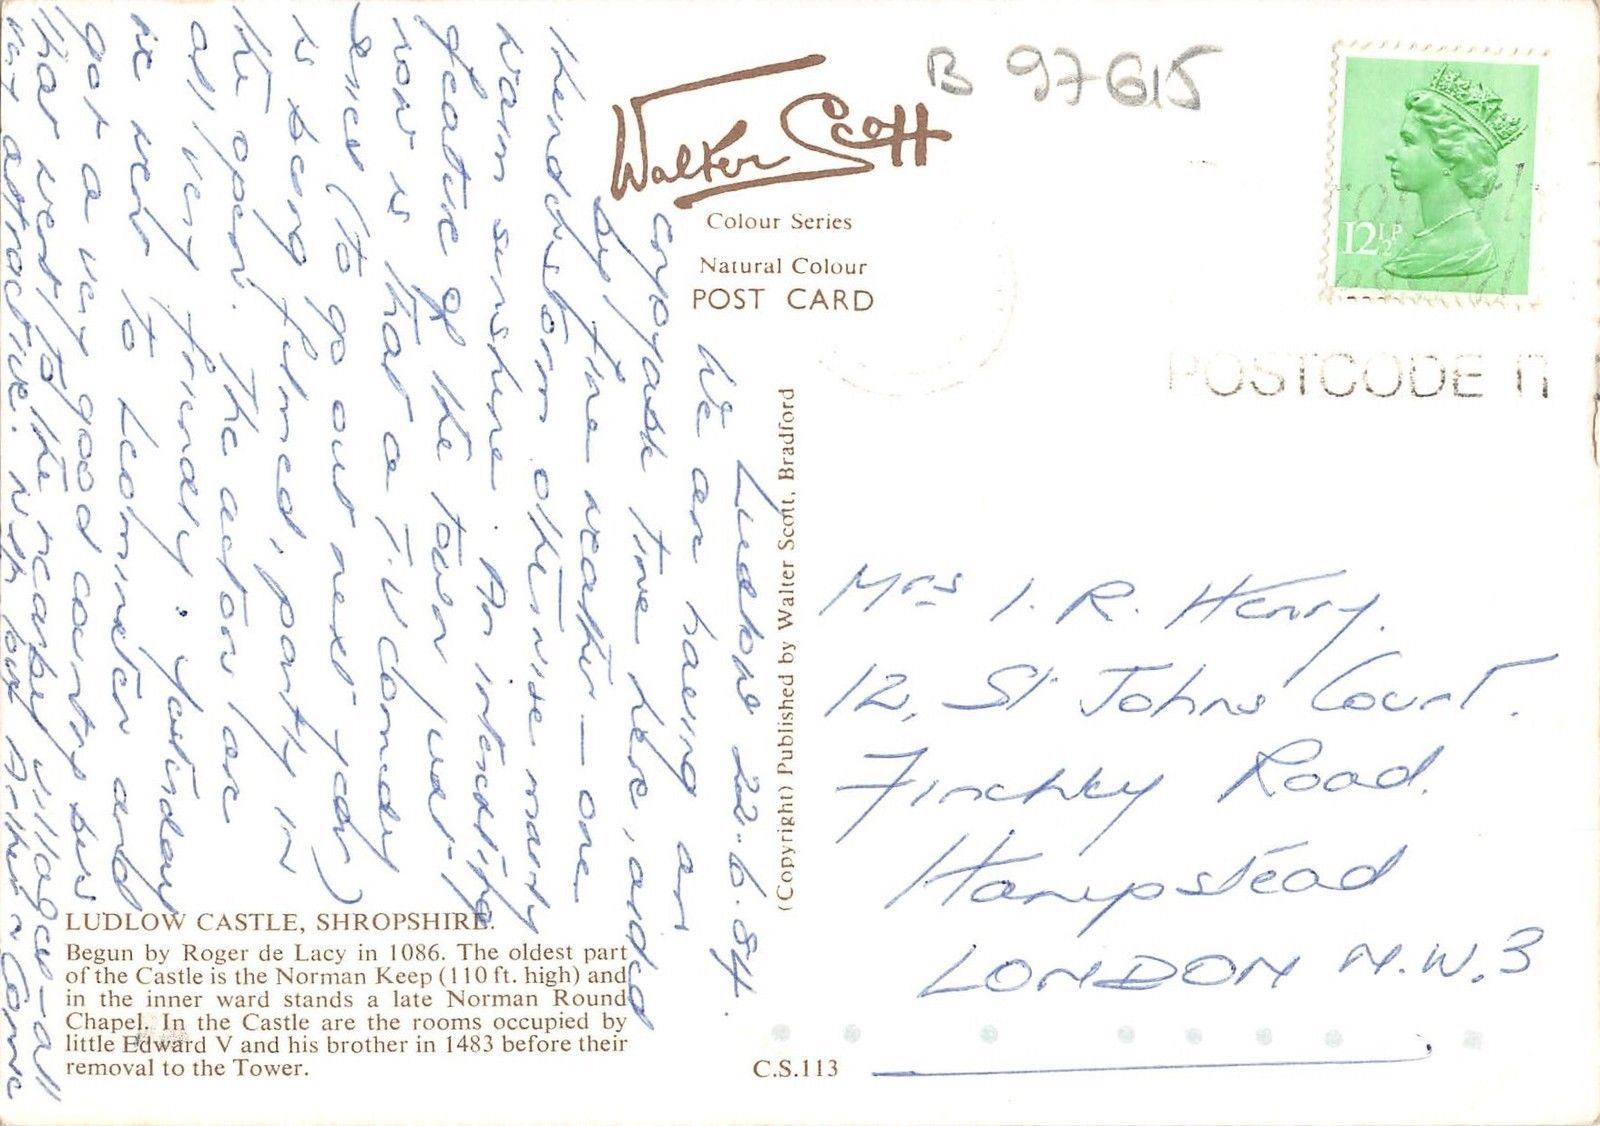 Walter Scott
Colour Series
Natural Colour
POST CARD
B 97615
12½P
POSTCODE IT
Ludlow 22.6.84.
We are having an
enjoyable time here, aided
by fine weather — one
thunderstorm otherwise mainly
warm sunshine. An interesting
feature of the town just
now is that a T.V comedy
series (to go out next year)
is being filmed, partly in
the open. The actors are
all very friendly. Yesterday
we went to Leominster and
got a very good country bus
that went to the nearby villages — all
very attractive.
(Copyright) Published by Walter Scott, Bradford
Mrs I. R. Henry.
12, St Johns Court.
Finchley Road.
Hampstead
LONDON N.W.3
LUDLOW CASTLE, SHROPSHIRE.
Begun by Roger de Lacy in 1086. The oldest part
of the Castle is the Norman Keep (110 ft. high) and
in the inner ward stands a late Norman Round
Chapel. In the Castle are the rooms occupied by
little Edward V and his brother in 1483 before their
removal to the Tower.
C.S.113